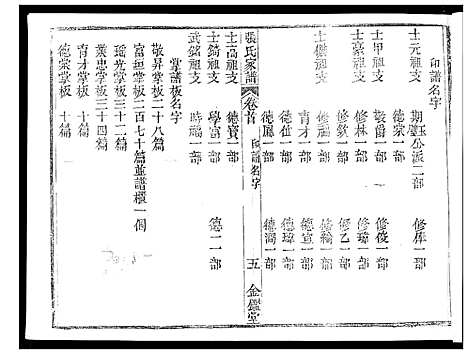 印譜名字
士元祖支 期璧玉公派二部 修傑一部
德崇一部
士甲祖支 敬爵一部 修俊一部
士豪祖支 修林一部 修瑋一部
修敦一部 修乙一部
士傑祖支 修福一部 修翰一部
育才一部 德宣一部
德仕一部 德瑋一部
德鳳一部 德潤一部
張氏家譜 卷首 印譜名字 五 金鑑堂
士高祖支 德寶一部
士錡祖支 學富一部 德二一部
武銘祖支 時福一部
掌譜板名字
敬昇掌板二十八篇
富垣掌板二百七十篇並譜櫃一個
瑶光掌板三十二篇
業忠掌板三十四篇
育才掌板 十篇
德崇掌板 十篇